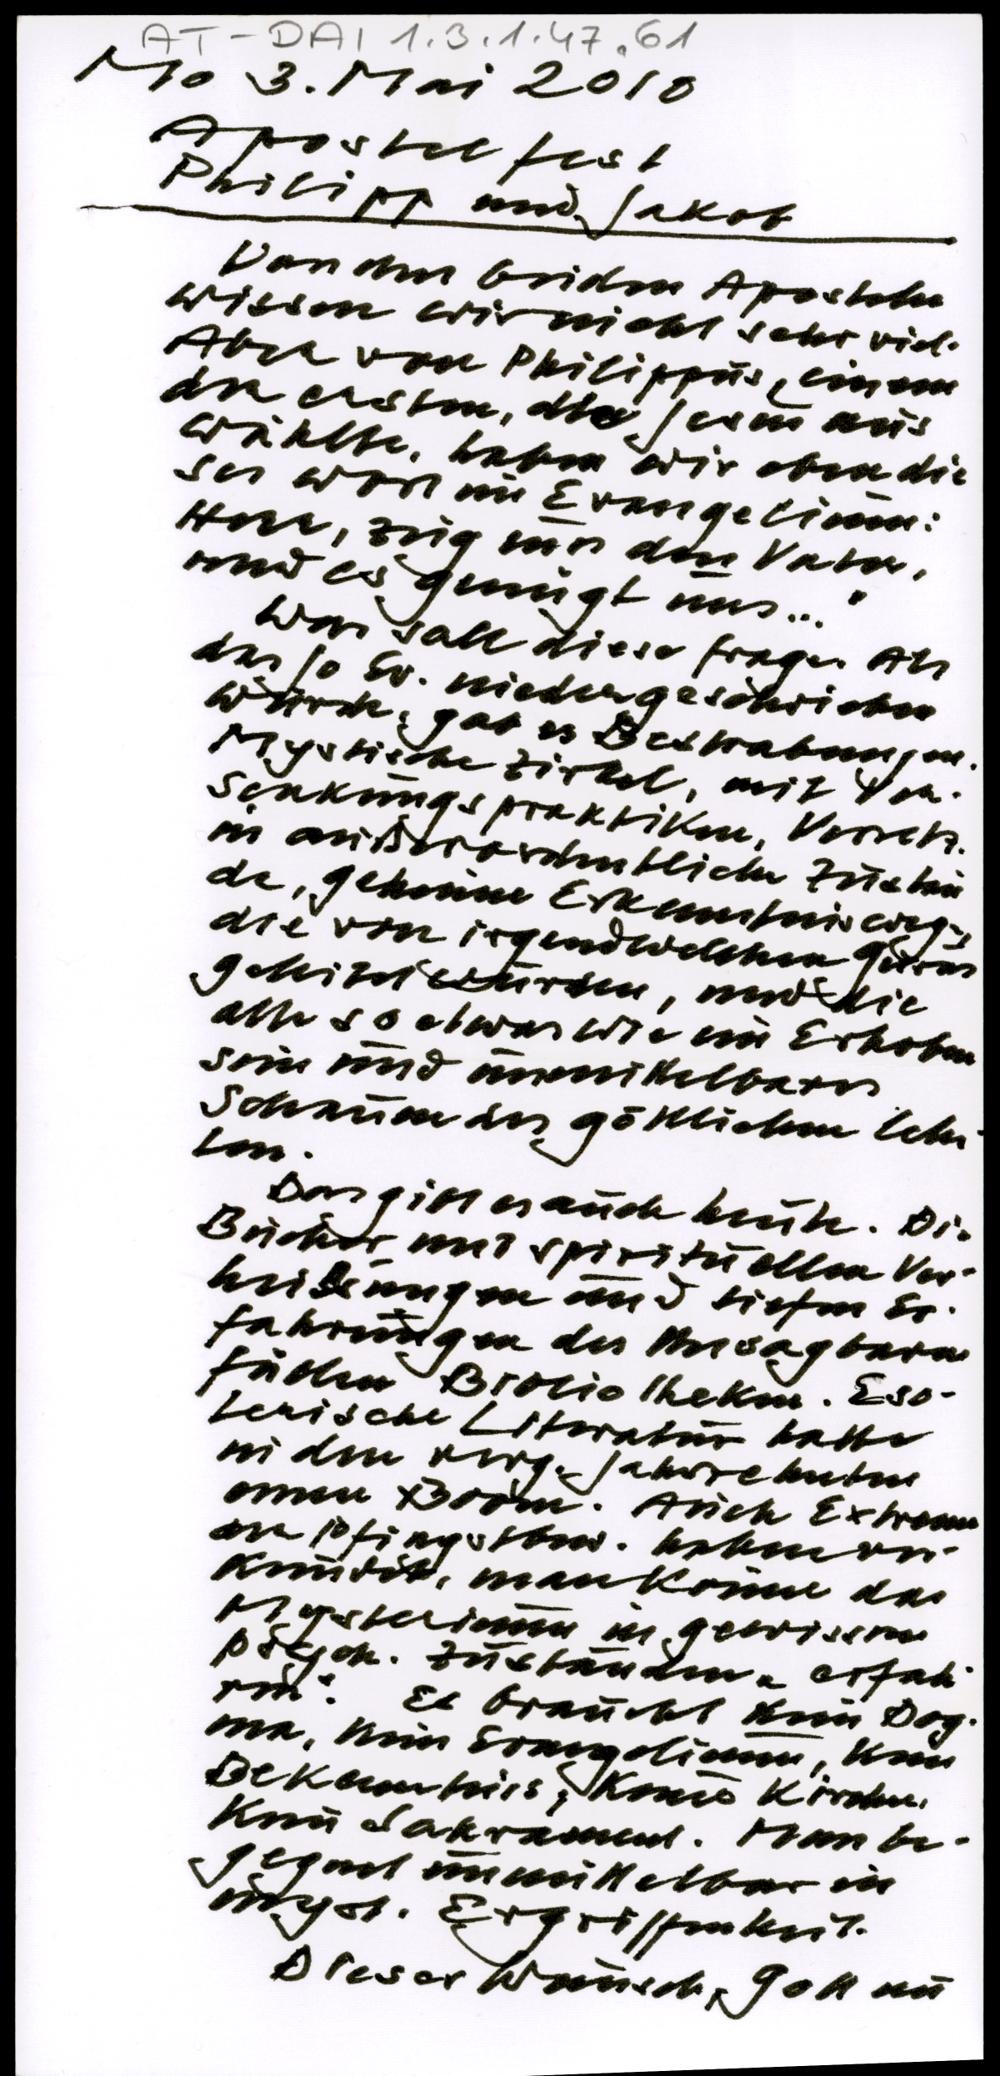 AT-DAI 1.3.1.47.61
Mo 3. Mai 2010
Apostelfest
Philipp und Jakob
Von den beiden Aposteln
wissen wir nicht sehr viel.
Aber von Philippus, einem
der ersten, die Jesus aus
wählte, haben wir eben die
ses Wort im Evangelium:
Herr, zeig uns den Vater,
und es genügt uns..."
Was soll diese Frage. Als
das Jo Ev. niedergeschrieben
wurde, gab es Bestrebungen.
Mystische Zirkel, mit Ver-
senkungspraktiken, Versetz.
in außerordentliche Zustän
de, geheime Erkenntniswege,
die von irgendwelchen Gurus
geleitet wurden, und die
alle so etwas wie ein Erhoben
sein und unmittelbares
Schauen des göttlichen
Das gibt es auch heute. Die
Bücher mit spirituellen Ver-
heißungen und tiefen Er-
fahrungen des Unsagbaren
füllen Bibliotheken. Eso-
terische Literatur hatte
in den verg. Jahrzehnten
einen Boom. Auch Extreme
der Pfingstbew. haben ver-
kündet, man könne das
Mysterium in gewissen
psych. Zuständen "erfah-
ren". Es braucht kein Dog-
ma, kein Evangelium, kein
Bekenntnis, keine Kirche,
kein Sakrament. Man be-
gegnet unmittelbar in
myst. Ergriffenheit.
Dieser Wunsch, Gott un